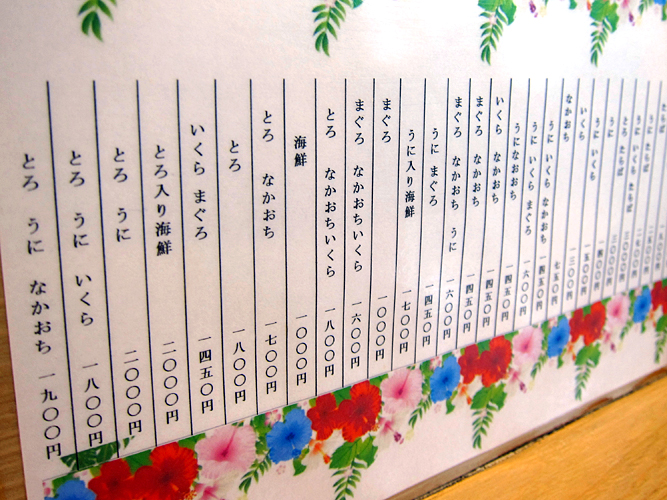 とろ たらば
うに いくら たらば
うに いくら
うに
いくら 一五〇〇円
なかおち 一三〇〇円
うに いくら なかおち
うに いくら まぐろ 一六〇〇円
うになおおち 一四五〇円
いくら なかおち 一四五〇円
まぐろ なかおち 一四五〇円
まぐろ なかおち うに 一六〇〇円
うに まぐろ 一四五〇円
うに入り海鮮 一七〇〇円
まぐろ 一〇〇〇円
まぐろ なかおちいくら 一六〇〇円
とろ なかおちいくら 一八〇〇円
海鮮 一〇〇〇円
とろ なかおち 一七〇〇円
とろ 一八〇〇円
いくら まぐろ 一四五〇円
とろ入り海鮮 二〇〇〇円
とろ うに 二〇〇〇円
とろ うに いくら 一八〇〇円
とろ うに なかおち 一九〇〇円